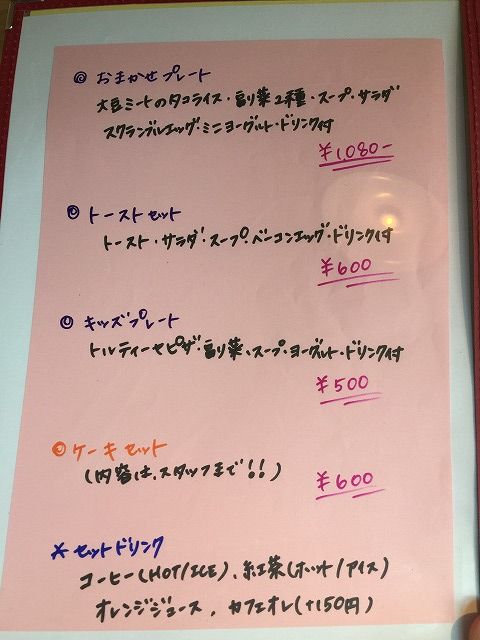 ◎ おまかせプレート
大豆ミートのタコライス・副菜2種・スープ・サラダ
スクランブルエッグ・ミニヨーグルト・ドリンク付
¥1,080-
◎ トーストセット
トースト・サラダ・スープ・ベーコンエッグ・ドリンク付
¥600
◎ キッズプレート
トルティーヤピザ・副菜・スープ・ヨーグルト・ドリンク付
¥500
◎ ケーキセット
(内容は、スタッフまで!!)
¥600
* セットドリンク
コーヒー(HOT/ICE)、紅茶(ホット/アイス)
オレンジジュース、カフェオレ(+150円)